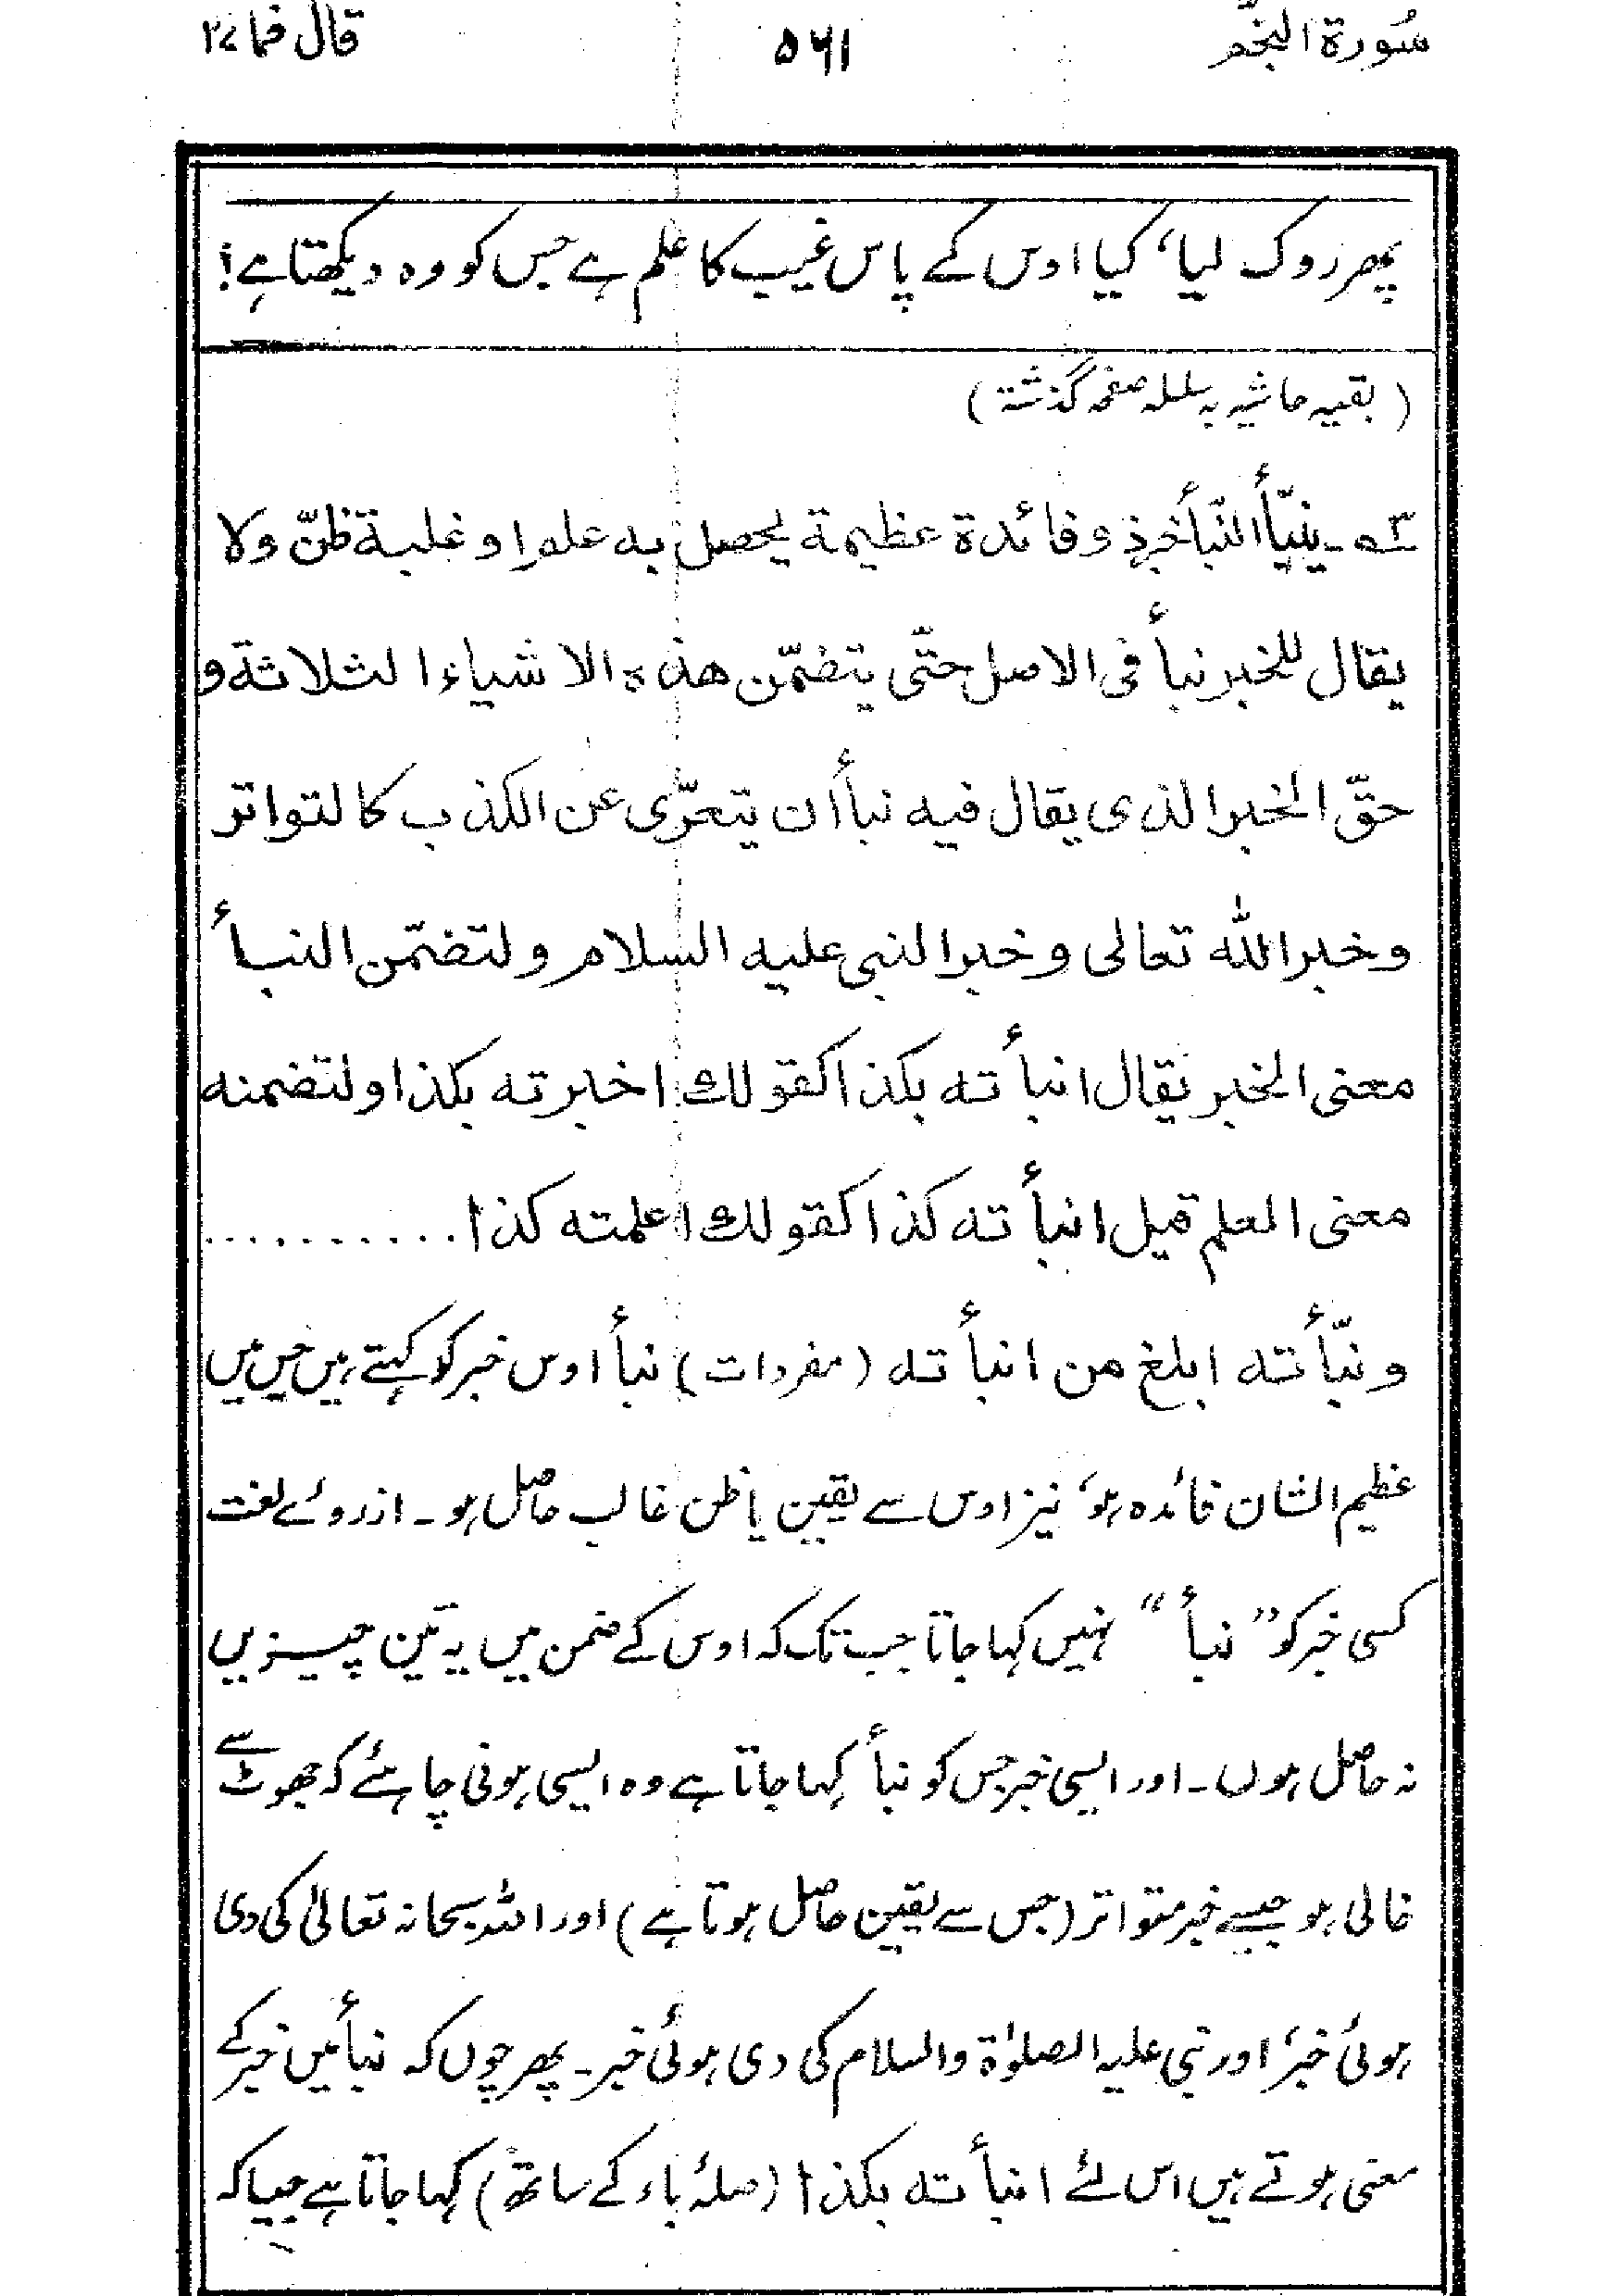 سُورة النجّم ۵۶۱ قال فما ۲۷
پھر روک لیا، کیا اوس کے پاس غیب کا علم ہے جس کو وہ دیکھتا ہے!
(بقیہ حاشیہ بہ سلسلہ صفحہ گذشتہ)
ینبّأ النّبأ خبرٌ ذو فائدة عظيمة يحصل به علم او غلبة ظنّ ولا
يقال للخبر نبأ فى الاصل حتّى يتضمّن هذه الاشياء الثلاثة و
حقّ الخبر الذى يقال فيه نبأ أن يتعرّى عن الكذب كالتواتر
وخبر الله تعالى وخبر النبى عليه السلام ولتضمّن النبأ
معنى الخبر يقال انبأته بكذا كقولك اخبرته بكذا ولتضمنه
معنى العلم قيل انبأته كذا كقولك اعلمته كذا ..........
ونبّأته ابلغ من انبأته (مفردات) نبأ اوس خبر کو کہتے ہیں جس میں
عظیم الشان فائدہ ہو، نیز اوس سے یقین یا ظن غالب حاصل ہو۔ ازروئے لغت
کسی خبر کو ”نبأ“ نہیں کہا جاتا جب تک کہ اوس کے ضمن میں یہ تین چیزیں
نہ حاصل ہوں۔ اور ایسی خبر جس کو نبأ کہا جاتا ہے وہ ایسی ہونی چاہئے کہ جھوٹ سے
خالی ہو جیسے خبر متواتر (جس سے یقین حاصل ہوتا ہے) اور اللہ سبحانہ تعالیٰ کی دی
ہوئی خبر، اور نبی علیہ الصلوٰة والسلام کی دی ہوئی خبر۔ پھر چوں کہ نبأ میں خبر کے
معنی ہوتے ہیں اس لئے انبأته بکذا (صلۂ باء کے ساتھ) کہا جاتا ہے جیسا کہ